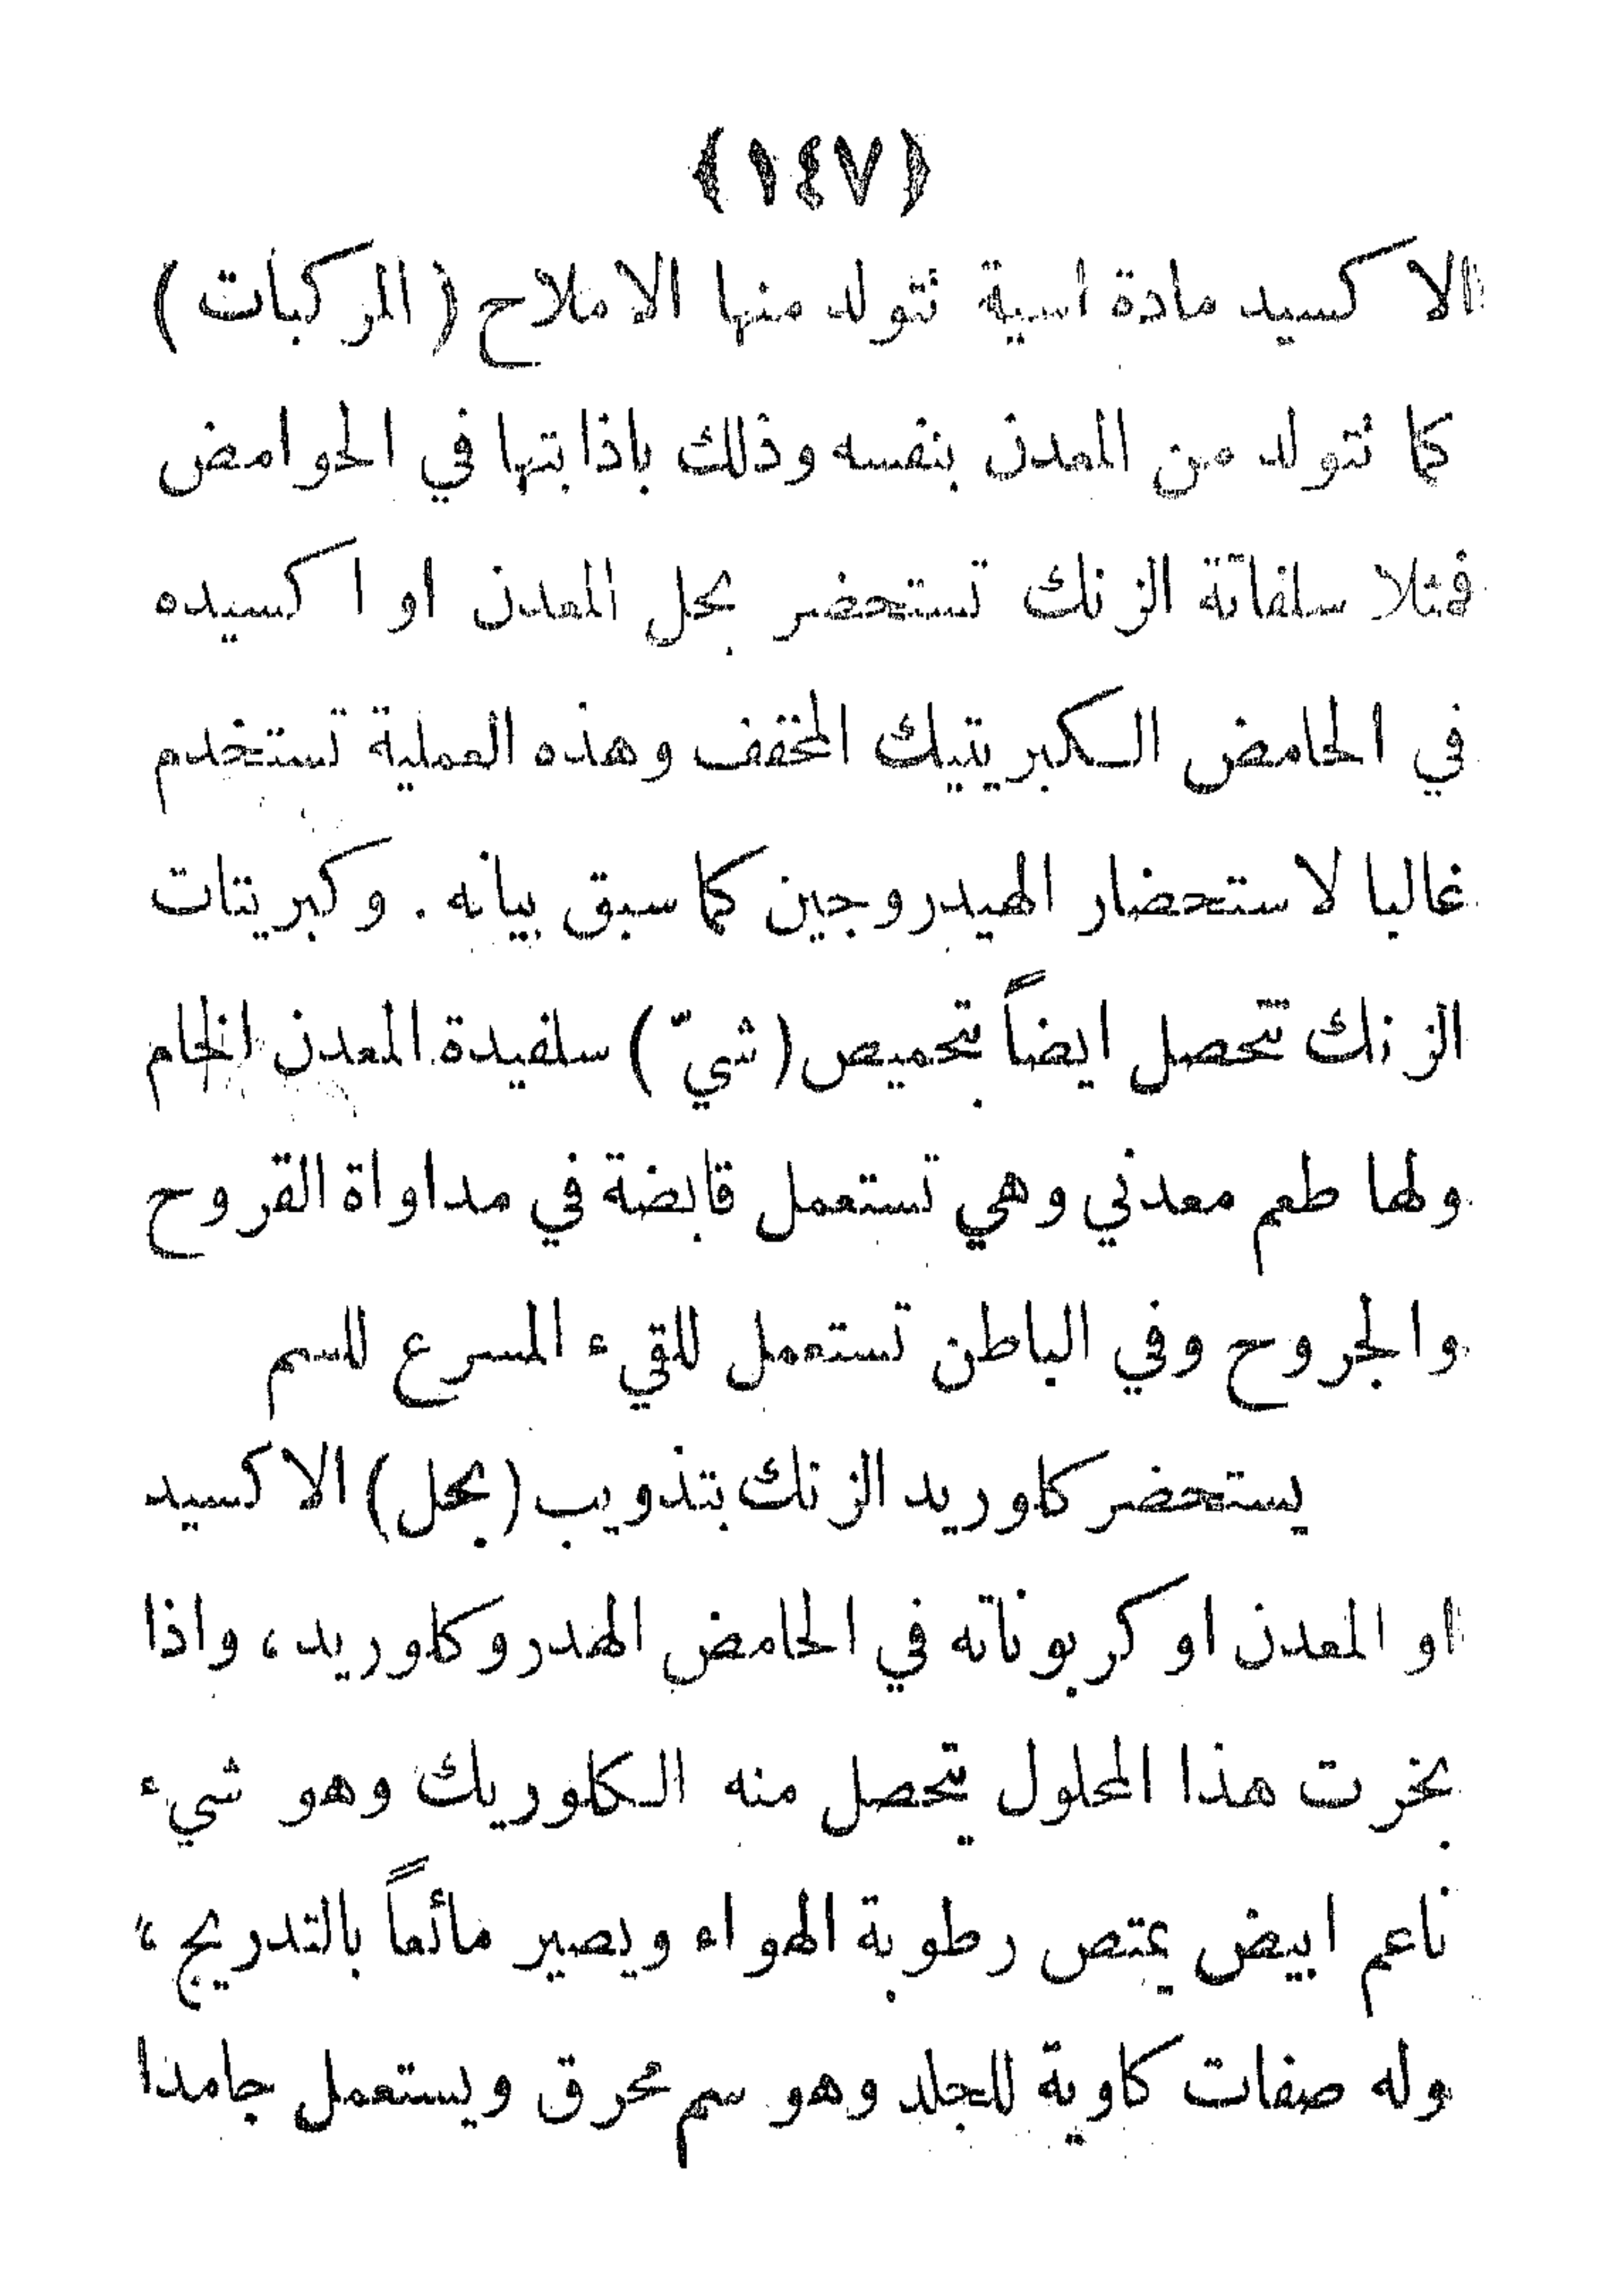 ﴿١٤٧﴾
الاكسيد مادة اسية تتولد منها الاملاح (المركبات)
كما تتولد من المعدن بنفسه وذلك باذابتها في الحوامض
فمثلا سلفاتة الزنك تستحضر بحل المعدن او اكسيده
في الحامض الكبريتيك المخفف وهذه العملية تستخدم
غالبا لاستحضار الهيدروجين كما سبق بيانه . وكبريتات
الزنك تتحصل ايضاً بتحميص (شيّ) سلفيدة المعدن الخام
ولها طعم معدني وهي تستعمل قابضة في مداواة القروح
والجروح وفي الباطن تستعمل للقيء المسرع للسم
يستحضر كلوريد الزنك بتذويب (بحل) الاكسيد
او المعدن او كربوناته في الحامض الهدروكلوريد، واذا
بخرت هذا المحلول يتحصل منه الكلوريك وهو شيء
ناعم ابيض يمتص رطوبة الهواء ويصير مائعاً بالتدريج،
وله صفات كاوية للجلد وهو سم محرق ويستعمل جامدا